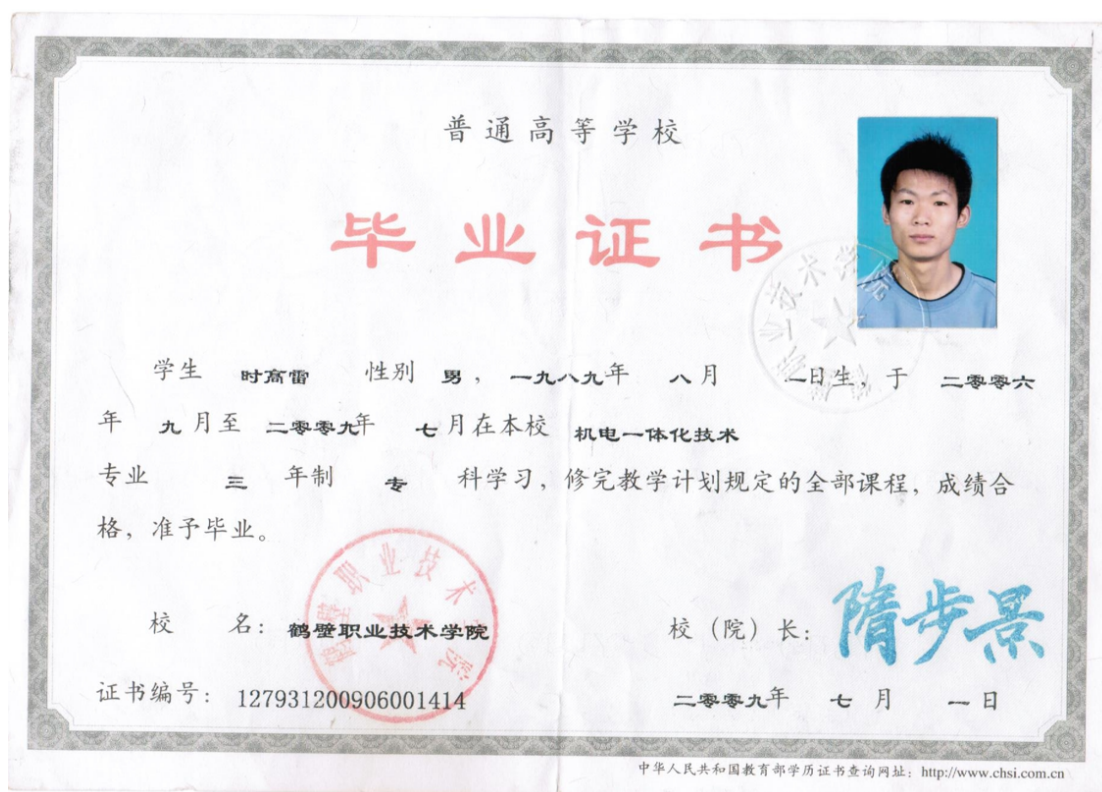 普通高等学校
毕业证书
学生 时高雷 性别 男，一九八九年 八月 二日生，于 二零零六
年 九月至 二零零九年 七月在本校 机电一体化技术
专业 三 年制 专 科学习，修完教学计划规定的全部课程，成绩合
格，准予毕业。
校 名：鹤壁职业技术学院
校（院）长：隋步景
证书编号：127931200906001414
二零零九年 七月 一日
中华人民共和国教育部学历证书查询网址：http://www.chsi.com.cn
鹤壁职业技术学院
职业技术学院